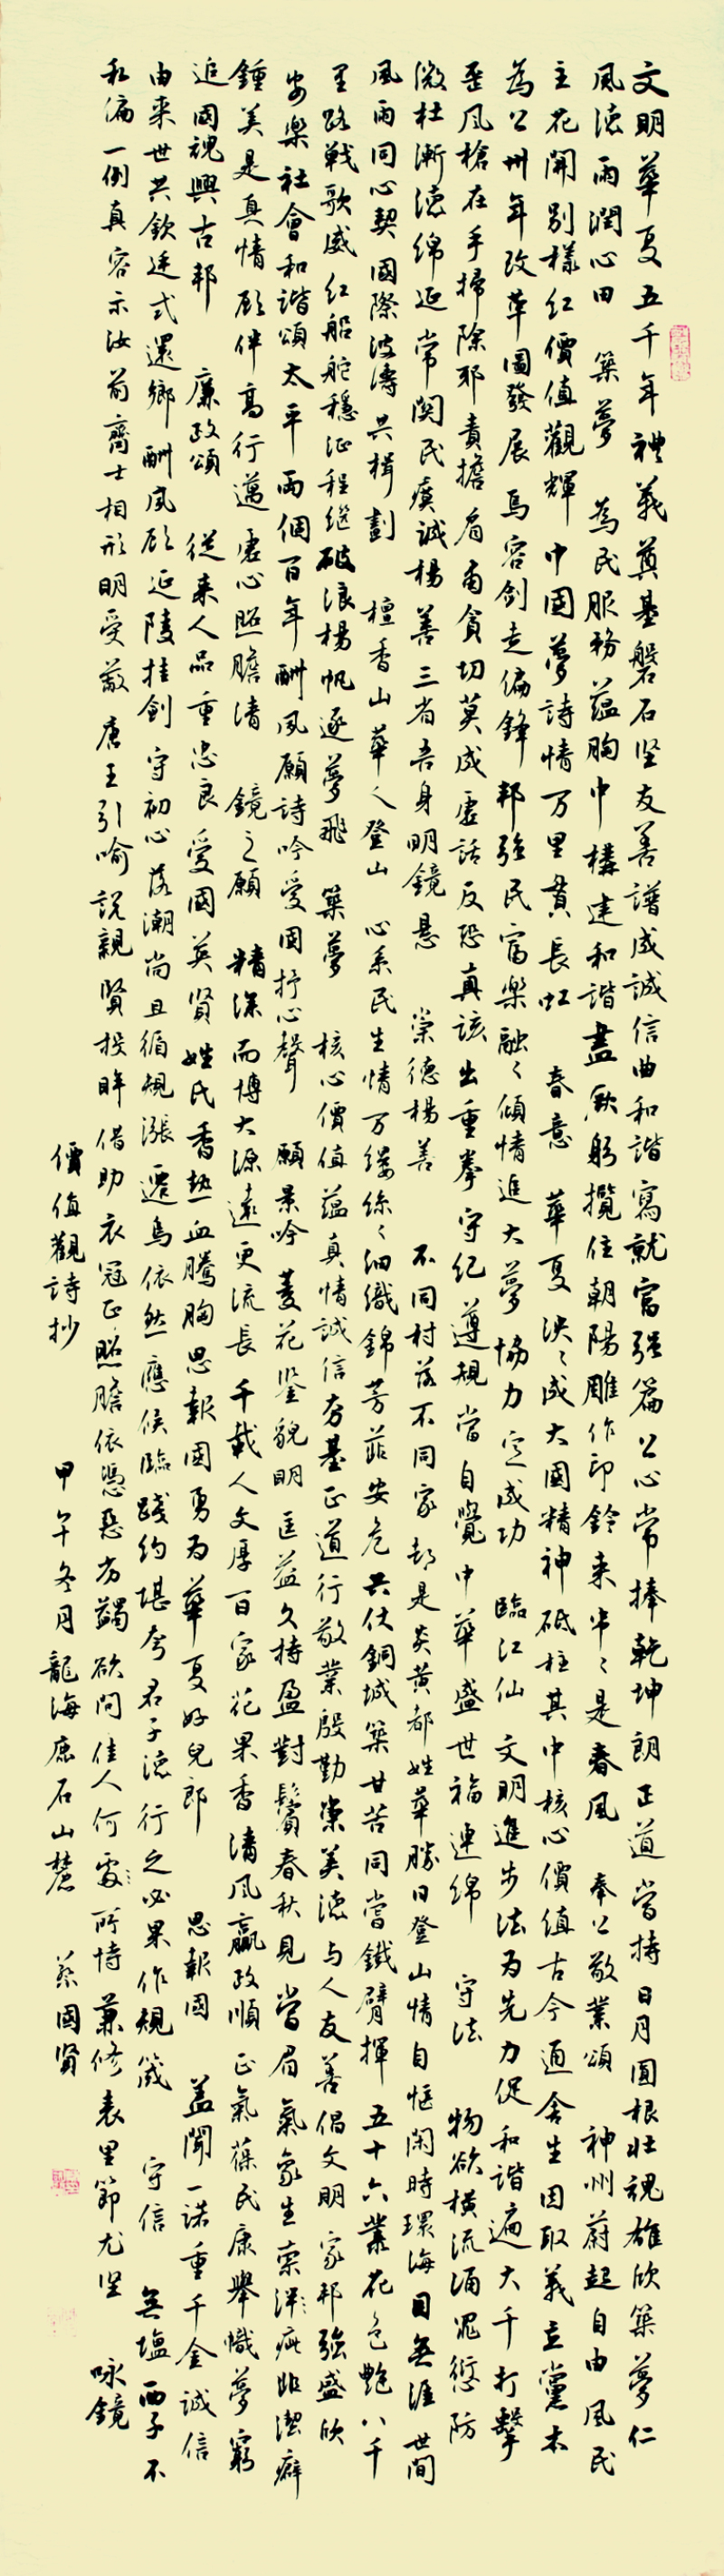 文明華夏五千年禮義奠基磐石堅友善譜成誠信曲和諧寫就富強篇公心常捧乾坤朗正道當持日月圓根壯魂雄欣築夢仁
風德雨潤心田 築夢 為民服務蘊胸中構建和諧盡厥躬攬住朝陽雕作印鈐来牛〻是春風 奉公敬業頌 神州蔚起自由風民
主花開別樣紅價值觀輝中国夢詩情万里貫長虹 春意 華夏泱〻成大國精神砥柱其中核心價值古今通舍生因取義立黨本
為公卅年改革圖發展馬容劍走偏鋒邦強民富樂融〻傾情進大夢協力定成功 臨江仙 文明進步法为先力促和諧遍大千打擊
歪風槍在手掃除邪責擔肩肅貪切莫成虛話反恐真該出重拳守紀遵規當自覺中華盛世福連綿 守法 物欲橫流涌罪愆防
微杜漸德綿延常関民瘼誠楊善三省吾身明鏡懸 崇德楊善 不同村落不同家都是炎黃都姓華勝日登山情自愜閑時環海目無涯世間
風雨同心契國際波濤共楫劃 檀香山華人登山 心系民生情万縷絲〻細織錦芳菲安危共仗銅城築甘苦同當鐵臂揮五十六叢花色艷八千
里路戰歌威紅船舵穩征程繼破浪楊帆逐夢飛 築夢 核心價值蘊真情誠信夯基正道行敬業殷勤崇美德与人友善倡文明家邦強盛欣
安樂社會和諧頌太平兩個百年酬夙願詩吟愛国抒心聲 願景吟 菱花鑒貌明匡益久持盈對鬢春秋見當眉氣象生索泮疵非潔癖
鍾美是真情願伴高行邁虛心照膽清 鏡之願 精深而博大源遠更流長千載人文厚百家花果香清風贏政順正氣葆民康舉幟夢窮
追國魂興古邦 廉政頌 從来人品重忠良愛國英賢姓氏香熱血騰胸思報國勇为華夏好兒郎 思報国 蓋聞一諾重千金誠信
由来世共欽廷式還鄉酬夙願延陵挂劍守初心落潮尚且循規漲遷鳥依然應候臨踐約堪夸君子德行之必果作規箴 守信 無塩西子不
私偏一例真容示汝前齊士相形明受蔽唐王引喻說親賢投眸借助衣冠正照膽依憑惡劣蠲欲問佳人何處所恃兼修表里節尤堅 咏鏡
價值觀詩抄 甲午冬月龍海鹿石山麓 蔡國賢